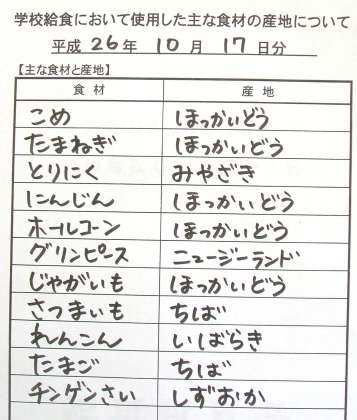 学校給食において使用した主な食材の産地について
平成 26年 10月 17日分
【主な食材と産地】
食材 産地
こめ ほっかいどう
たまねぎ ほっかいどう
とりにく みやざき
にんじん ほっかいどう
ホールコーン ほっかいどう
グリンピース ニュージーランド
じゃがいも ほっかいどう
さつまいも ちば
れんこん いばらき
たまご ちば
チンゲンさい しずおか